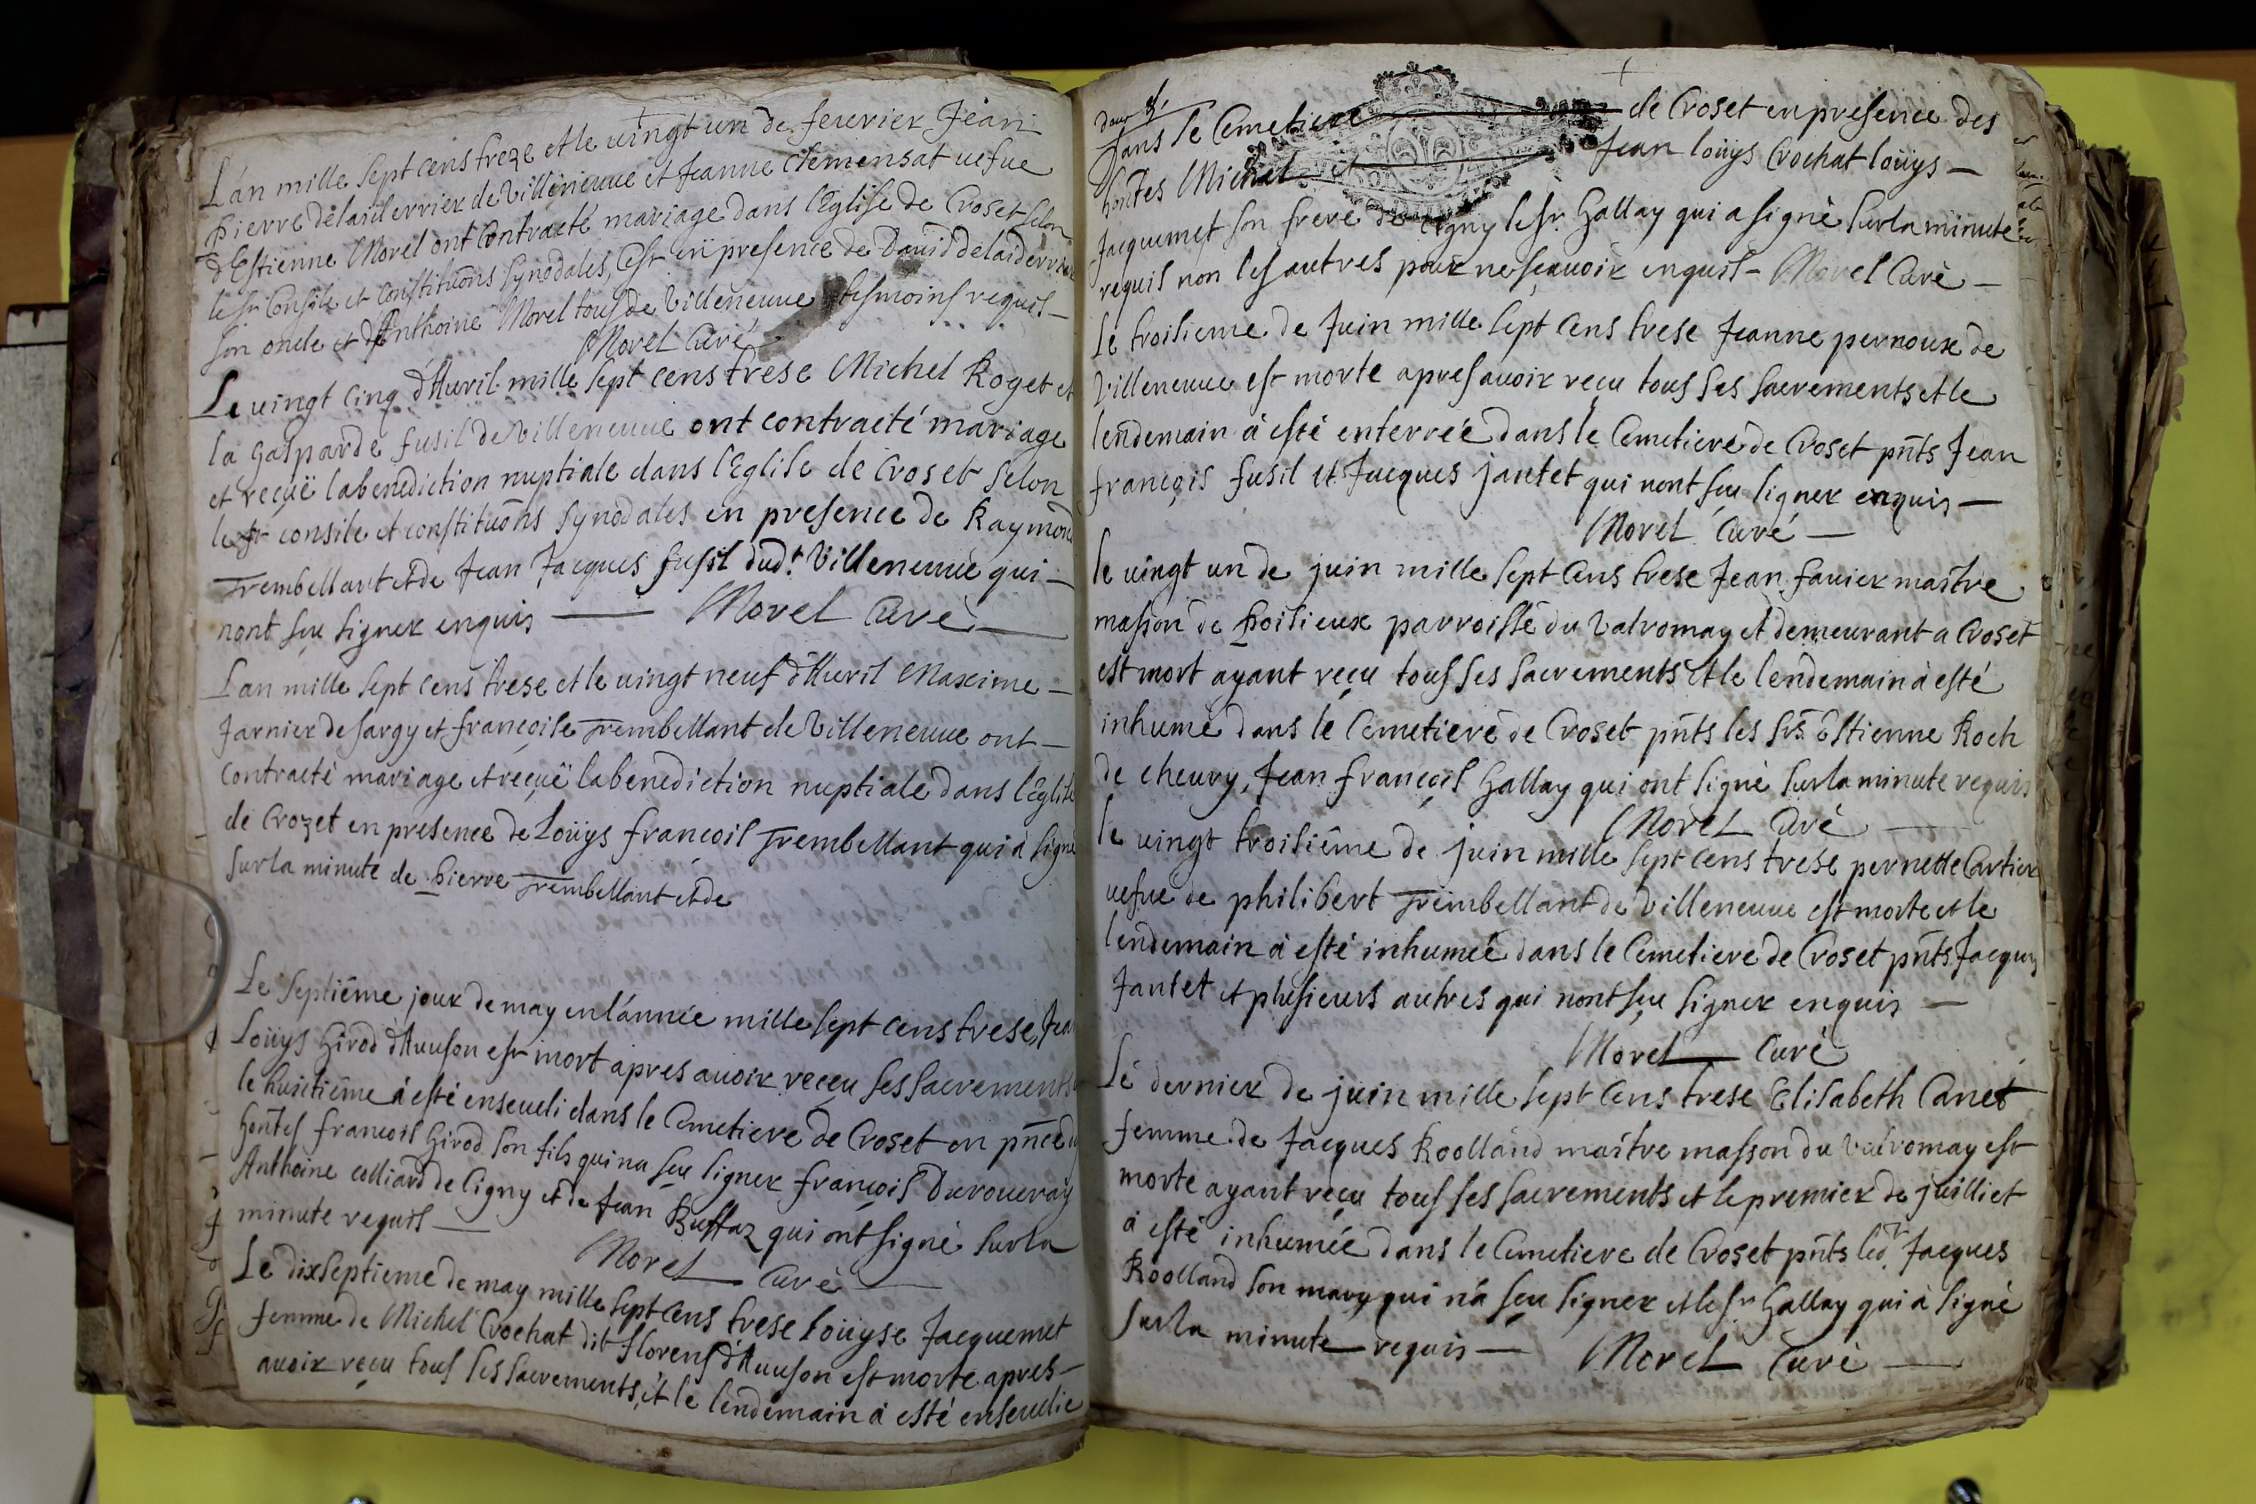 L'an mille sept cens treze et le vingt un de feuvrier Jean
pierre delaiderrier de Villeneuve et Jeanne Clemensat vefue
d'Estienne Morel ont contracté mariage dans l'Eglise de Croset selon
le st Consile et constituõns synodales, C'est en presence de David delaiderrier
son oncle et d'Anthoine Morel tous de Villeneuve tesmoins requis
Morel Curé
Le vingt cinq d'Auril mille sept cens trese Michel Roget et
la Gasparde fusil de Villeneuue ont contracté mariage
et reçuë la benediction nuptiale dans l'Eglise de Croset selon
le st consile et constituõns synodales en presence de Raymond
Trembellant et de Jean Jacques fusil dud.t Villeneuue qui
nont sçu signer enquis Morel Curé
L'an mille sept cens trese et le vingt neuf d'Auril Maxime
Jarnier de Sargy et françoise Trembellant de Villeneuue ont
contracté mariage et reçuë la benediction nuptiale dans l'Eglise
de Crozet en presence de Loüys francois Trembellant qui à signé
sur la minute de pierre Trembellant et de
Le septiême jour de may en l'année mille sept cens trese, Jea
Loüys Girod d'Auuson est mort apres auoir reçeu ses sacrements
le huictiême à esté enseueli dans le Cemetiere de Croset en pñce d
hoñtes francois Girod son fils qui na sçu signer françois Duroueray
Anthoine colliard de Cigny et de Jean Buffaz qui ont signé sur la
minute requis
Morel Curé
Le dixseptieme de may mille sept cens trese Loüyse Jacquemet
femme de Michel Crochat dit florens d'Auuson est morte apres
auoir reçu tous ses sacrements, et le lendemain à esté enseuelie
dans le Cemetiere de Croset en presence des
hoñtes Michel et Jean loüys Crochat loüys
Jacquemet son frere de Cigny le sr. Gallay qui a signé sur la minute
requis non les autres pour ne sçauoir enquis Morel Curé
Le troisieme de Juin mille sept cens trese Jeanne pernoux de
Villeneuue est morte apres auoir reçu tous ses sacrements et le
lendemain à esté enterrée dans le Cemetiere de Croset pñts Jean
françois fusil et Jacques jantet qui nont sçu signer enquis
Morel Curé
le vingt un de juin mille sept cens trese Jean fauier maître
masson de poisieux parroisse du Valromay et demeurant a Croset
est mort ayant reçu tous ses sacrements et le lendemain à esté
inhumé dans le Cemetiere de Croset pñts les srs Estienne Roch
de cheury, Jean françois Gallay qui ont signé sur la minute requis
Morel Curé
le vingt troisiême de juin mille sept cens trese pernette Cartier
vefue de philibert Trembellant de Villeneuue est morte et le
lendemain à esté inhumée dans le Cemetiere de Croset pñts Jacques
Jantet et plusieurs autres qui nont sçu signer enquis
Morel Curé
Le dernier de juin mille sept cens trese Elisabeth Canet
femme de Jacques Roolland maître masson du Valromay est
morte ayant reçu tous ses sacrements et le premier de juilliet
à esté inhumée dans le Cemetiere de Croset pñts led.t Jacques
Roolland son mary qui n'a sçu signer et le sr Gallay qui à signé
sur la minute requis Morel Curé